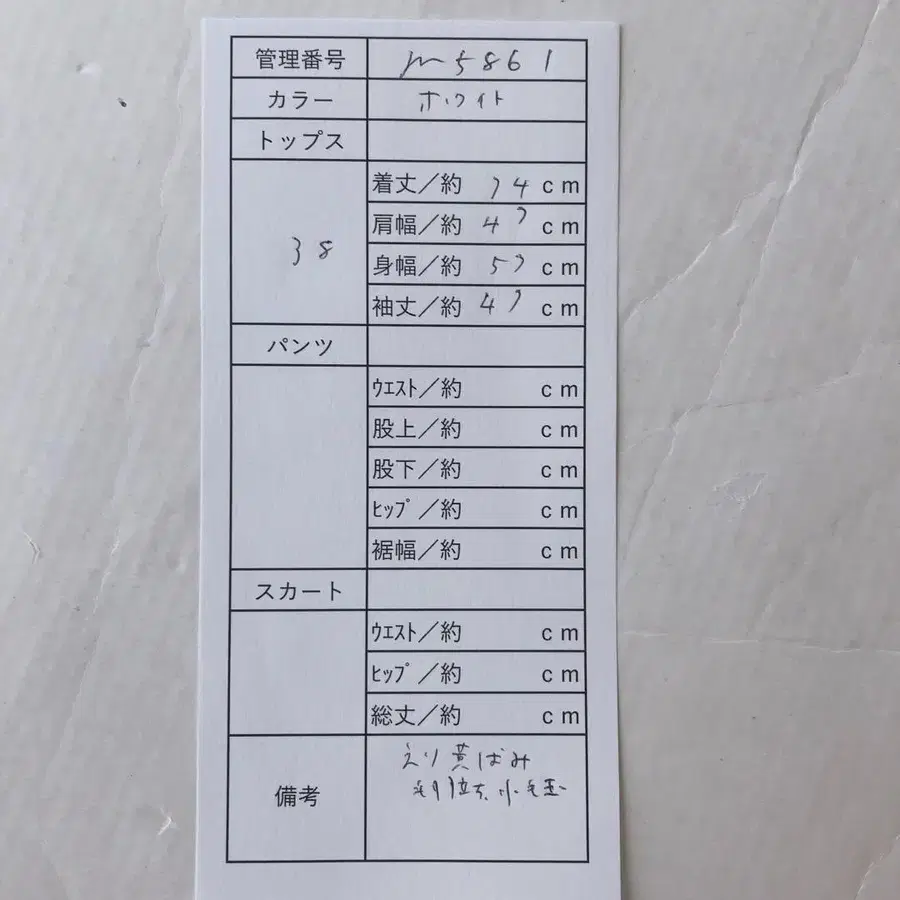 管理番号 m5861
カラー ホワイト
トップス
38
着丈／約 74 cm
肩幅／約 47 cm
身幅／約 57 cm
袖丈／約 47 cm
パンツ
ｳｴｽﾄ／約 cm
股上／約 cm
股下／約 cm
ﾋｯﾌﾟ／約 cm
裾幅／約 cm
スカート
ｳｴｽﾄ／約 cm
ﾋｯﾌﾟ／約 cm
総丈／約 cm
備考
えり黄ばみ
毛羽立ち、小毛玉